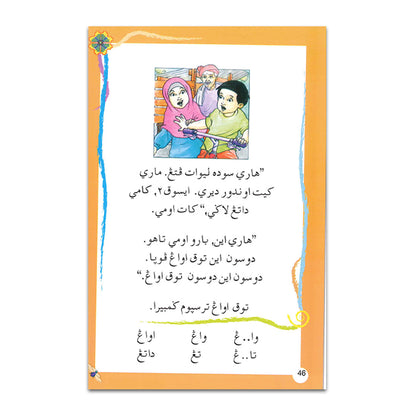 "هاري سوده ليوات ڤتڠ. ماري
كيت اوندور ديري. ايسوق٢، كامي
داتڠ لاݢي،" كات اومي.
"هاري اين، بارو اومي تاهو.
دوسون اين توق اواڠ ڤوڽا.
دوسون اين دوسون توق اواڠ."
توق اواڠ ترسڽوم ݢمبيرا.
وا..ڠ واڠ اواڠ
تا..ڠ تڠ داتڠ
46